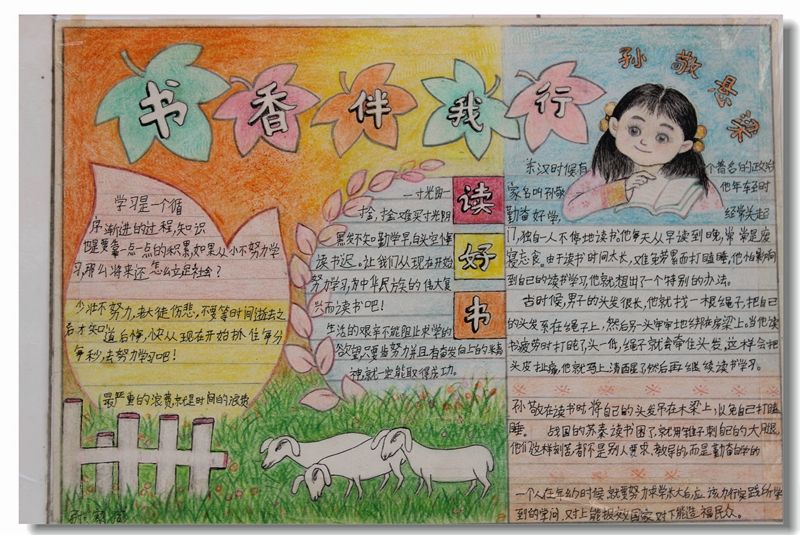 书香伴我行
孙敬悬梁
学习是一个循
序渐进的过程,知识
也是要靠一点一点的积累,如果从小不努力学
习,那么将来还怎么立足社会?
少壮不努力,老大徒伤悲,不要等时间逝去之
后才知道后悔,快从现在开始抓住每分
每秒,去努力学习吧!
最严重的浪费就是时间的浪费
读好书
一寸光阴一
金,寸金难买寸光阴
黑发不知勤学早,白头空悔
读书迟。让我们从现在开始
努力学习,为中华民族的伟大复
兴而读书吧!
生活的艰辛不能阻止求学的
欲望,只要肯努力并且有奋发向上的
神,就一定能取得成功。
东汉时候有个著名的政治
家名叫孙敬 他年轻时
勤奋好学, 经常关起
门,独自一人不停地读书,他每天从早读到晚,常常是废
寝忘食。由于读书时间太长,难免劳累而打瞌睡,他怕影响
到自己的读书学习,他就想出了一个特别的办法。
古时候,男子的头发很长,他就找一根绳子,把自己
的头发系在绳子上,然后另一头牢牢地绑在房梁上。当他读
书疲劳时打盹了,头一低,绳子就会牵住头发,这样会把
头皮扯痛,他就马上清醒了,然后再继续读书学习。
孙敬在读书时将自己的头发吊在木梁上,以免自己打瞌
睡。 战国的苏秦读书困了,就用锥子刺自己的大腿,
他们这样刻苦都不是别人要求、教导的,而是勤奋自学的
一个人在年幼时候就要努力求学,长大后应该力行实践幼学
到的学问,对上能报效国家,对下能造福民众。